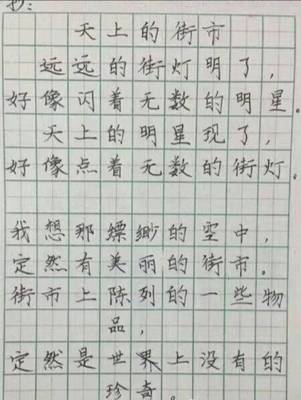 天上的街市
远远的街灯明了,
好像闪着无数的明星。
天上的明星现了,
好像点着无数的街灯。
我想那缥缈的空中,
定然有美丽的街市.
街市上陈列的一些物
品,
定然是世界上没有的
珍奇。